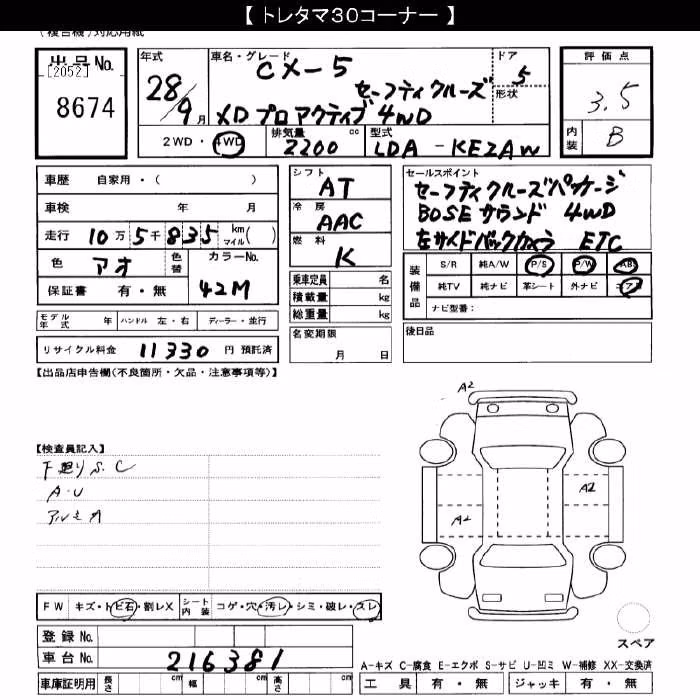 【 トレタマ30コーナー 】
(複合機)対応用紙
出品No. [2052] 8674
年式 28/9月
車名・グレード CX-5 セーフティクルーズ
XD プロアクティブ 4WD
ドア 5
形状
評価点 3.5
内装 B
2WD・4WD 排気量 2200 cc 型式 LDA-KE2AW
車歴 自家用・( )
車検 年 月
走行 10万5千835 km マイル( )
色 アオ 色替 カラーNo. 42M
保証書 有・無
モデル年式 年 ハンドル 左・右 ディーラー・並行
リサイクル料金 11330 円 預託済
シフト AT
冷房 AAC
燃料 K
乗車定員 名
積載量 kg
総重量 kg
名変期限 月 日
セールスポイント
セーフティクルーズパッケージ
BOSEサウンド 4WD
左サイドバックカメラ ETC
装備品 S/R 純A/W P/S P/W ABS
純TV 純ナビ 革シート 外ナビ エアB
ナビ型番:
後日品
【出品店申告欄(不良箇所・欠品・注意事項等)】
【検査員記入】
下廻りS.C
A・U
アルミA
A2
A2
A2
FW キズ・トビ石・割レX シート内装 コゲ・穴・汚レ・シミ・破レ・スレ
登録No.
車台No. 216381
車庫証明用 長さ cm 幅 cm 高さ cm
スペア
A-キズ C-腐食 E-エクボ S-サビ U-凹ミ W-補修 XX-交換済
工具 有・無 ジャッキ 有・無